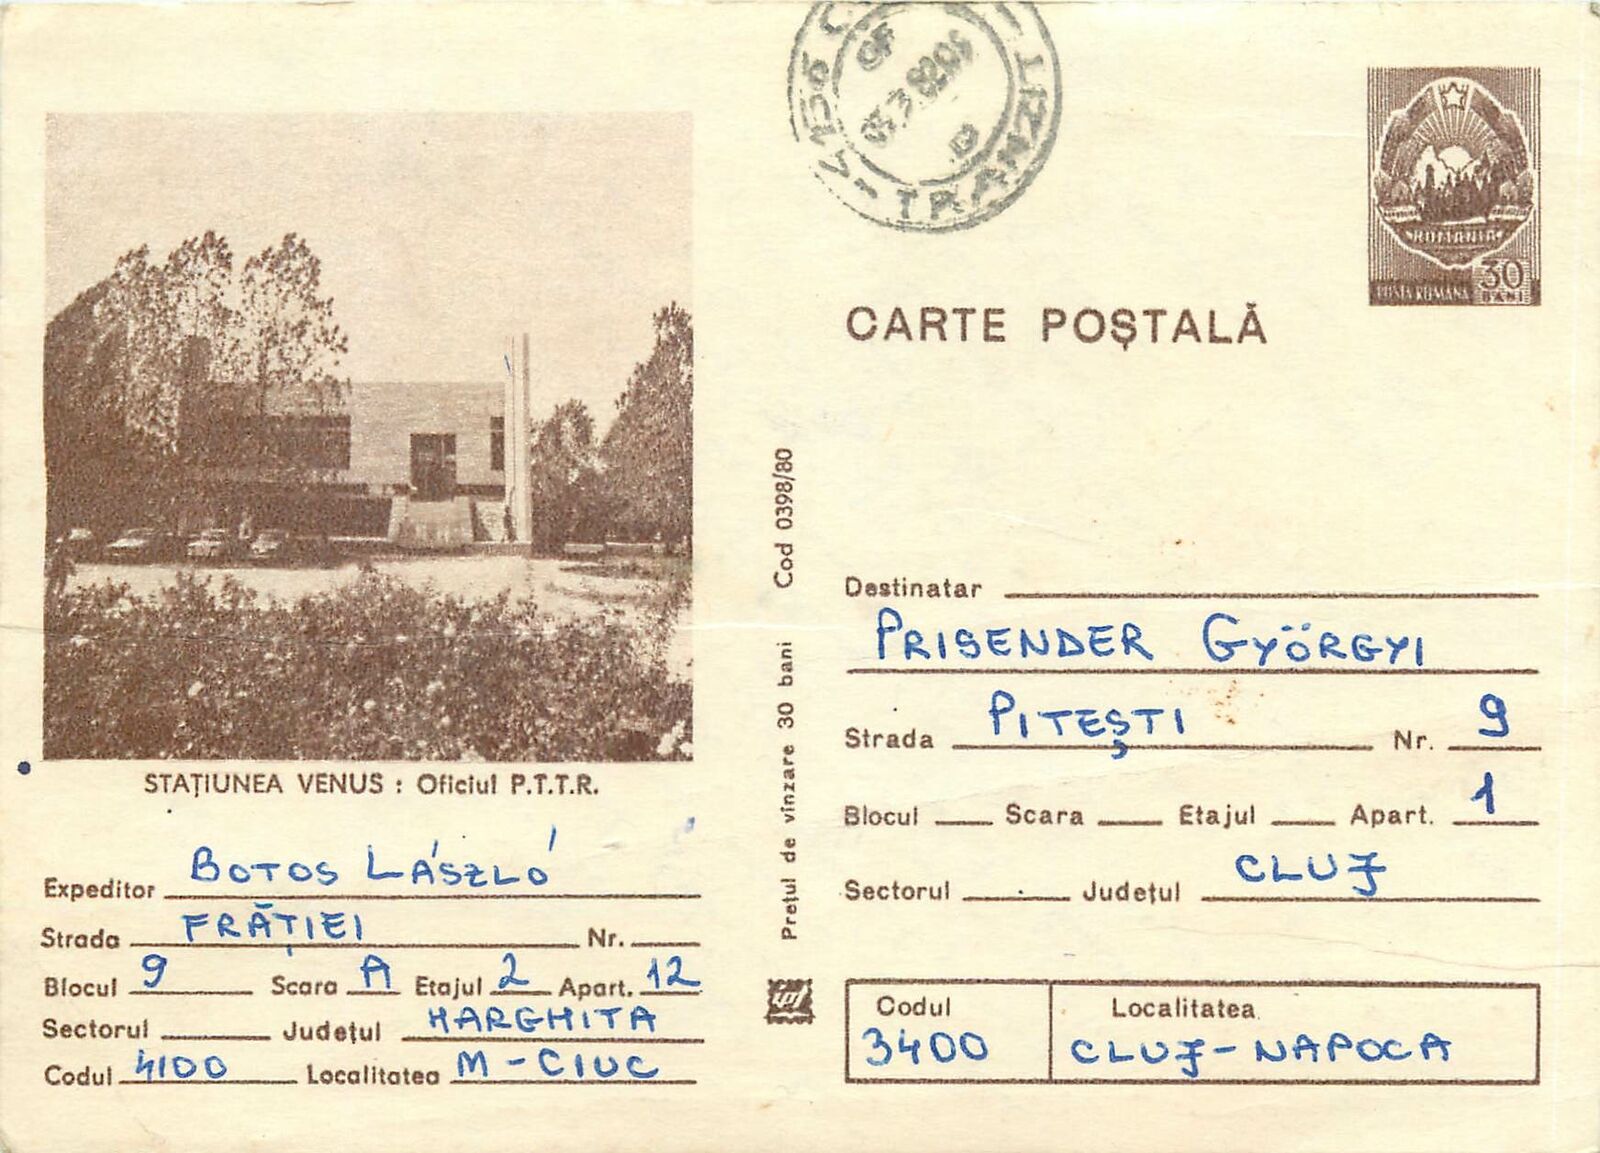 TRANZIT
ROMANIA
POSTA ROMANA 30 BANI
CARTE POȘTALĂ
STAȚIUNEA VENUS : Oficiul P.T.T.R.
Expeditor BOTOS LÁSZLÓ
Strada FRĂȚIEI Nr.
Blocul 9 Scara A Etajul 2 Apart. 12
Sectorul Județul HARGHITA
Codul 4100 Localitatea M-CIUC
Prețul de vînzare 30 bani Cod 0398/80
Destinatar
PRISENDER GYÖRGYI
Strada PITEȘTI Nr. 9
Blocul Scara Etajul Apart. 1
Sectorul Județul CLUJ
Codul Localitatea
3400 CLUJ-NAPOCA